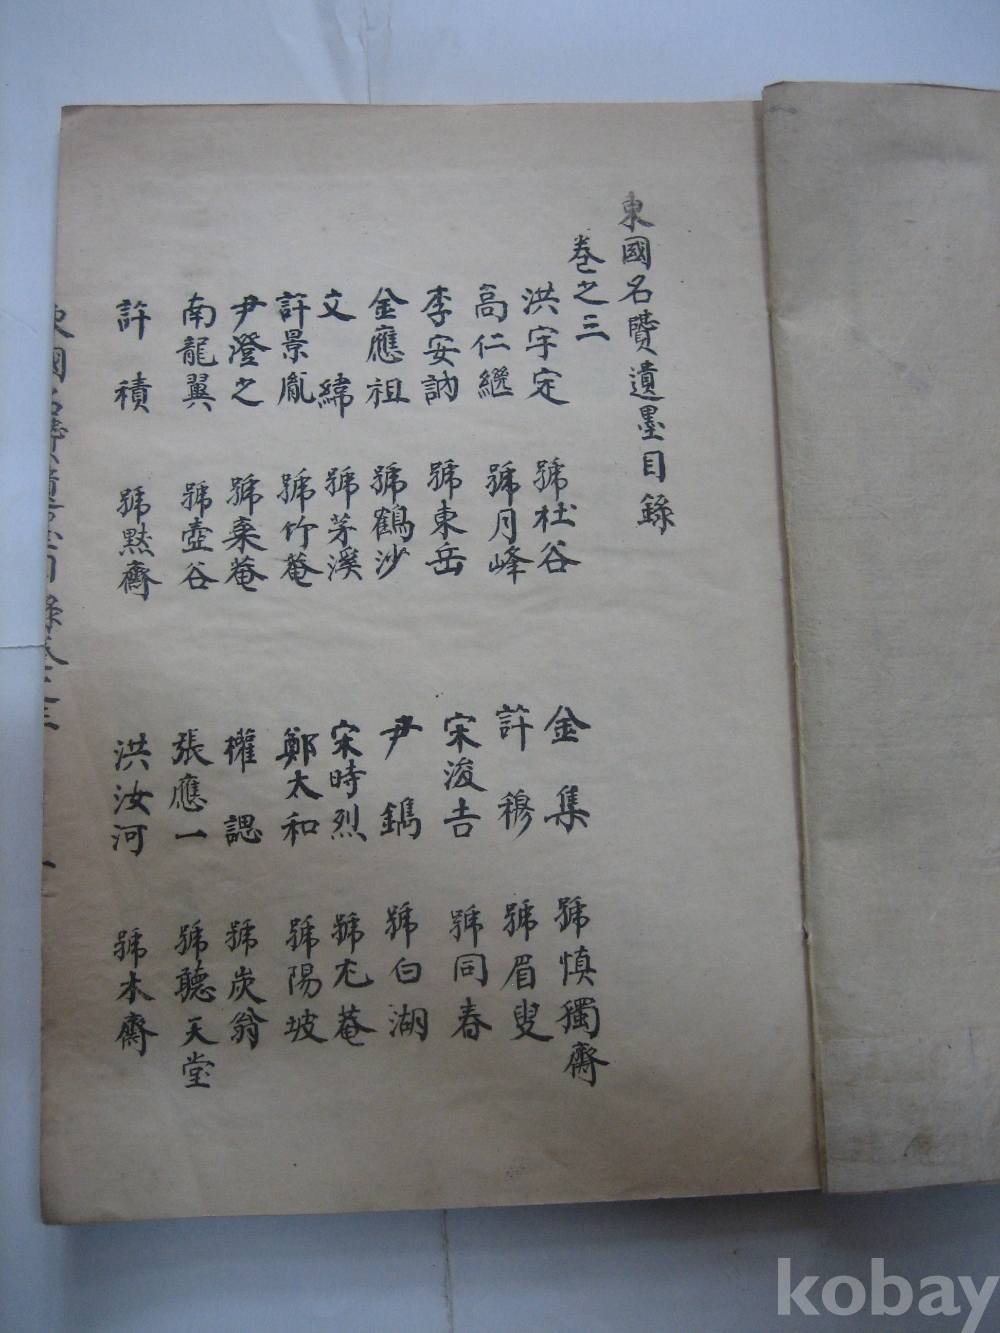 東國名賢遺墨目錄
卷之三
洪宇定 號杜谷 金集 號慎獨齋
高仁繼 號月峰 許穆 號眉叟
李安訥 號東岳 宋浚吉 號同春
金應祖 號鶴沙 尹鑴 號白湖
文緯 號茅溪 宋時烈 號尤菴
許景胤 號竹菴 鄭太和 號陽坡
尹澄之 號棄菴 權諰 號炭翁
南龍翼 號壺谷 張應一 號聽天堂
許積 號默齋 洪汝河 號木齋
kobay